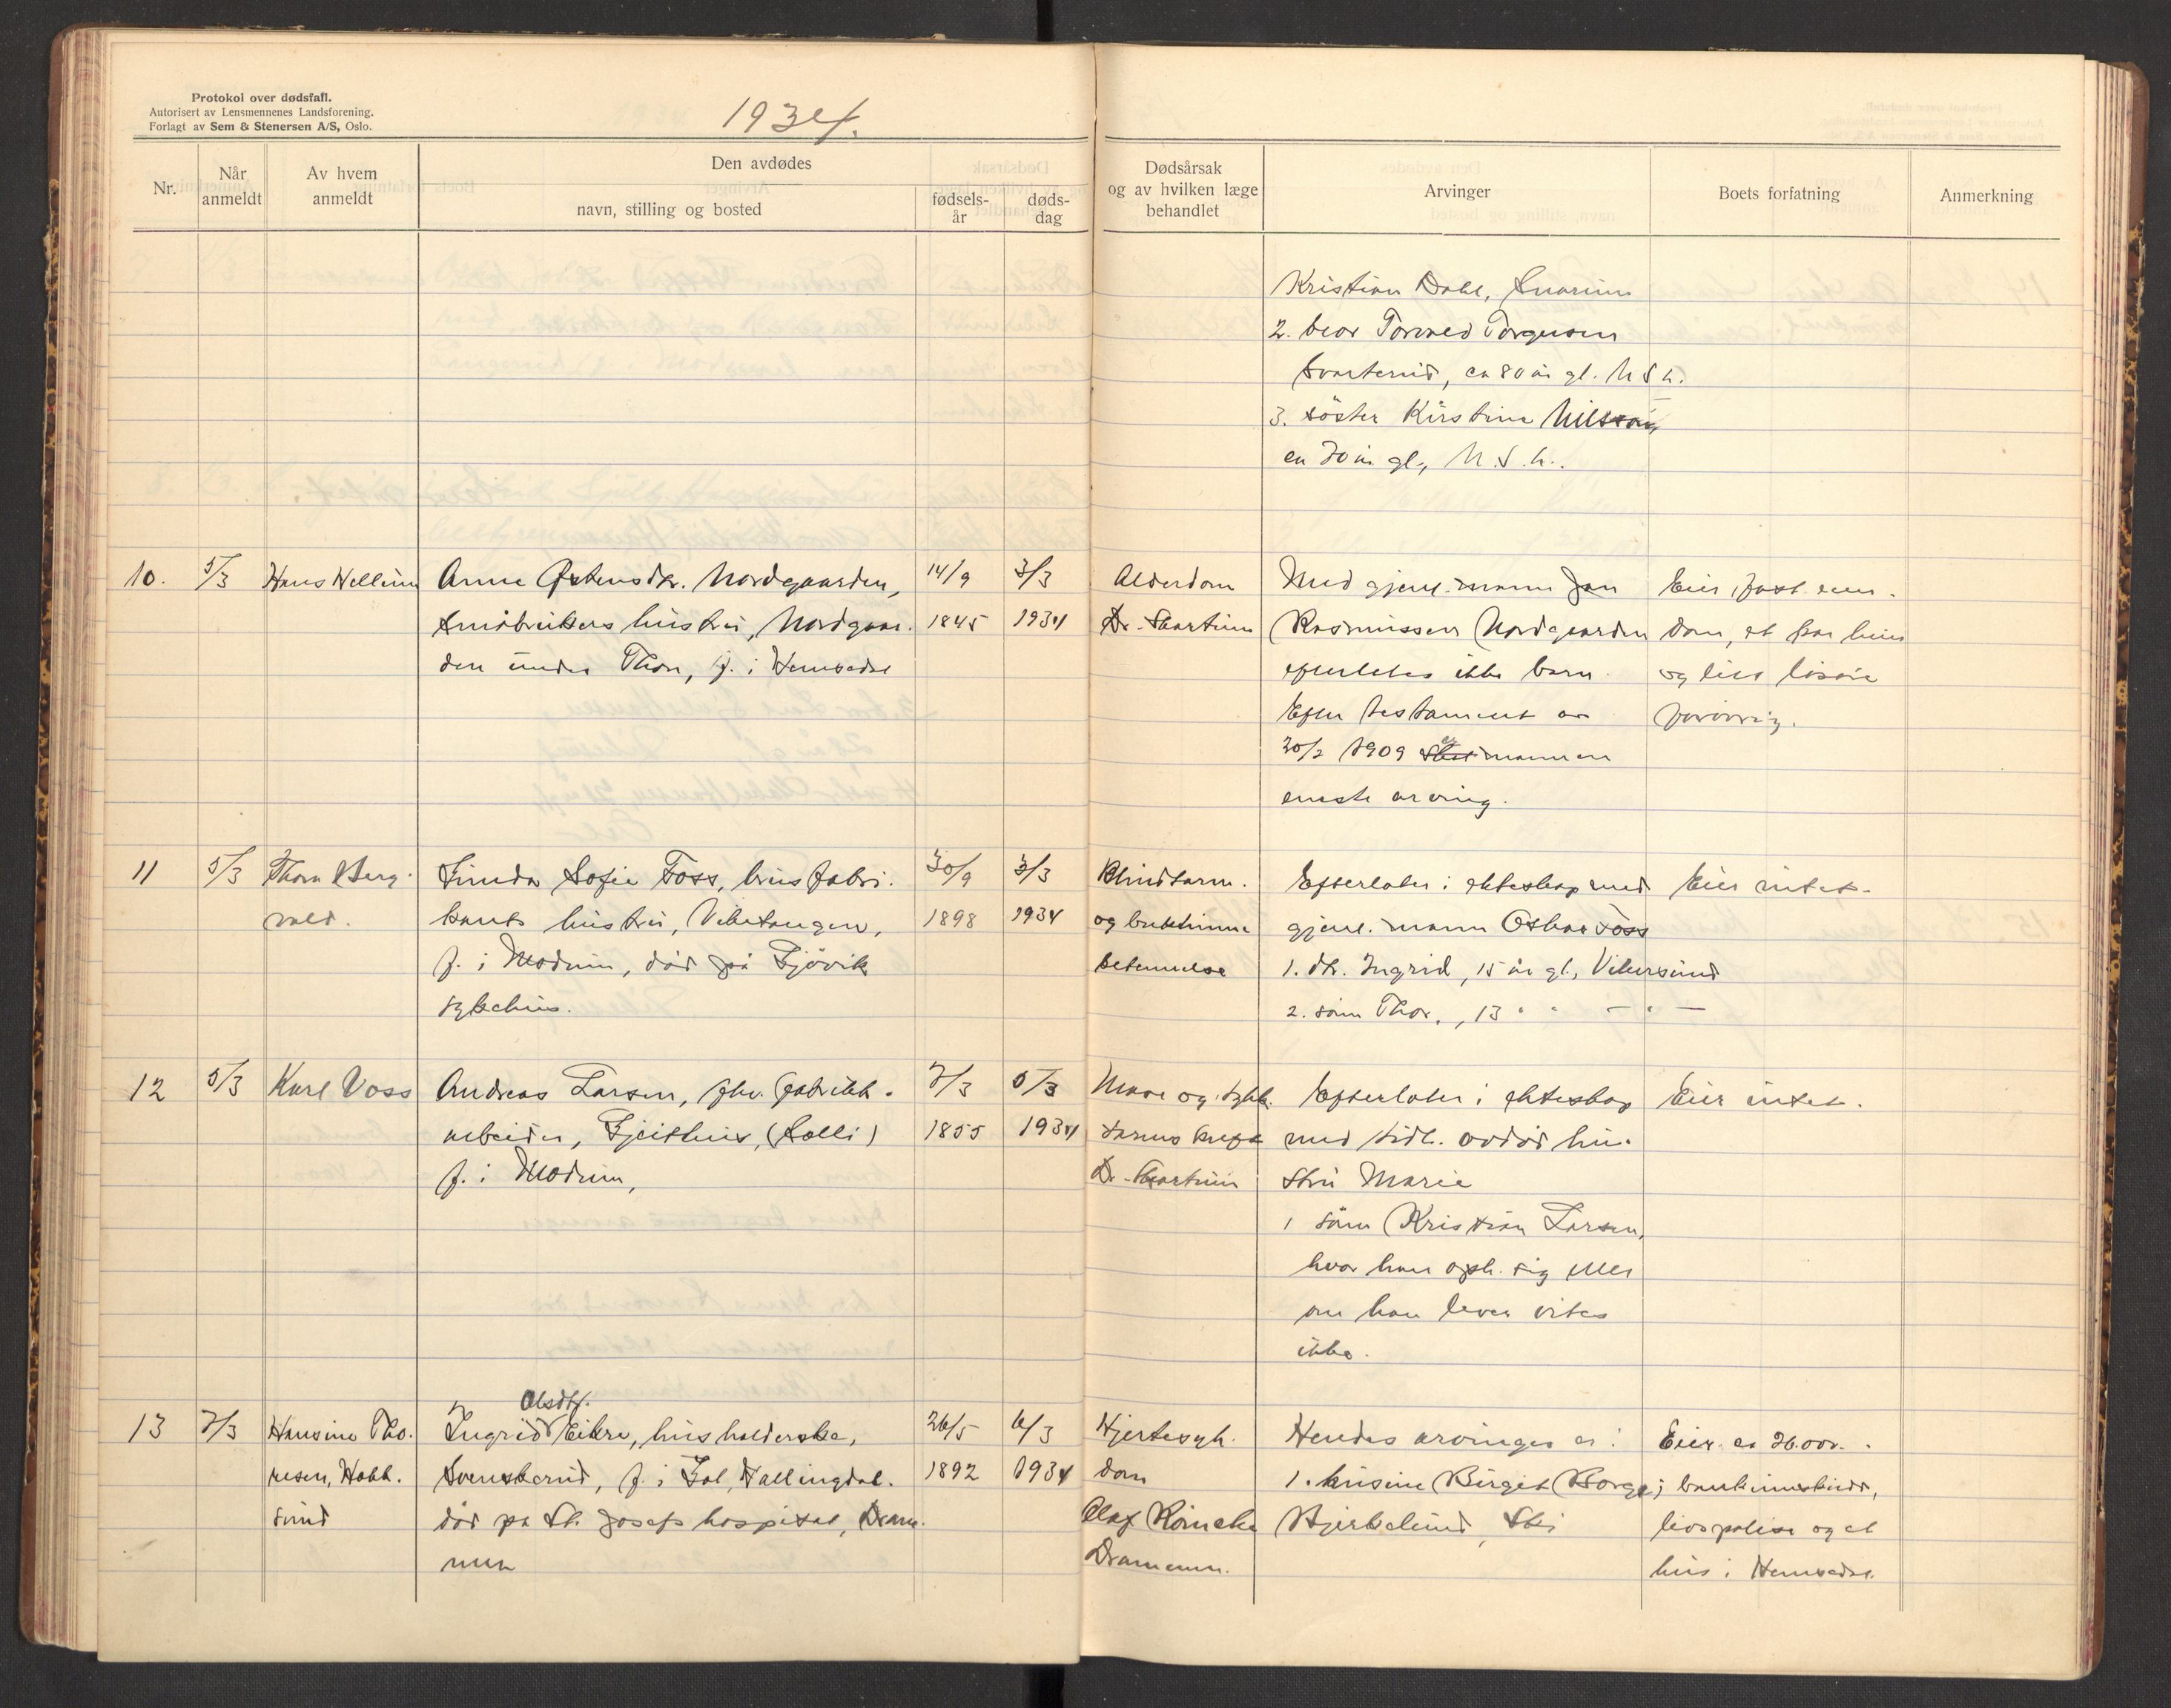 Protokol over dødsfall.
Autorisert av Lensmennenes Landsforening.
Forlagt av Sem & Stenersen A/S, Oslo.
1934.
Nr.
Når anmeldt
Av hvem anmeldt
Den avdødes
navn, stilling og bosted
fødsels-år
døds-dag
Dødsårsak
og av hvilken læge
behandlet
Arvinger
Boets forfatning
Anmerkning
Kristian Dahl, Snarum
2. bror Torvald Torgersen
ca 80 år gl. N S h.
3. söster Kirstine Nilssen,
ca 70 år gl., N. S. h..
10.
5/3
Hans Hellum
Anne Østensdtr. Nordgaarden,
småbrukers hustru, Nordgaar-
den under Thon, f. i Hemsedal
14/9
1845
3/3
1934
Alderdom
Dr. Skartum
Med gjenl. mann Jon
Rasmussen Nordgaarden
efterlates ikke barn.
Efter testament av
30/3 1909 er mannen
eneste arving.
Eier fast eien-
dom, et par
og litt løsøre
forövrig.
11
5/3
Thorv. Berg-
vald.
Linda Sofie Foss, brusfabri-
kants hustru, Vikesangen,
f. i Modum, död på Gjövik
sykehus.
30/9
1898
3/3
1934
Blindtarm-
og bukhinne
betennelse
Efterlater i ekteskap med
gjenl. mann Oskar Foss
1. dtr. Ingrid, 15 år gl., Vikersund
2. sönn Thor, 13 " " — " —
Eier intet.
12
5/3
Karl Voss
Andreas Larsen, fhv. fabrikk-
arbeider, Gjeithus, (Kolli)
f. i Modum,
7/3
1855
5/3
1934
Mave og tykk-
tarms kreft
Dr. Skartum
Efterlater i ekteskap
med tidl. avdöd hu-
stru Marie
1 sönn Kristian Larsen,
hvor han oph. sig eller
om han lever vites
ikke.
Eier intet.
13
7/3
Hansine Tho-
resen, Hokk-
sund
Olsdtr.
Ingrid Eikre, husholderske,
Svenskerud, f. i Gol, Hallingdal.
död på St. Josefs hospital, Dram-
men
26/5
1892
6/3
1934
Hjertesyk-
dom
Olaf
Drammen.
Hendes arvinger er:
1. kusine Birgit Borge
Hjerkelund, Ski
Eier ca 2600.-
i bankinnskudd,
livspolise og et
hus i Hemsedal.